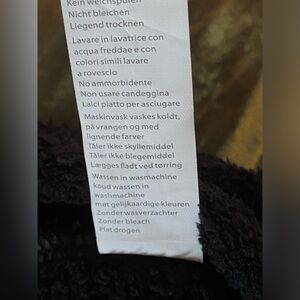 Kein Weichspülen
Nicht bleichen
Liegend trocknen
Lavare in lavatrice con
acqua freddae e con
colori simili lavare
a rovescio
No ammorbidente
Non usare candeggina
Laici piatto per asciugare
Maskinvask vaskes koldt,
på vrangen og med
lignende farver
Tåler ikke skyllemiddel
Tåler ikke blegemiddel
Lægges fladt ved tørring
Wassen in wasmachine
koud wassen in
washmachine
met gelijkaardige kleuren
Zonder wasverzachter
Zonder bleach
Plat drogen